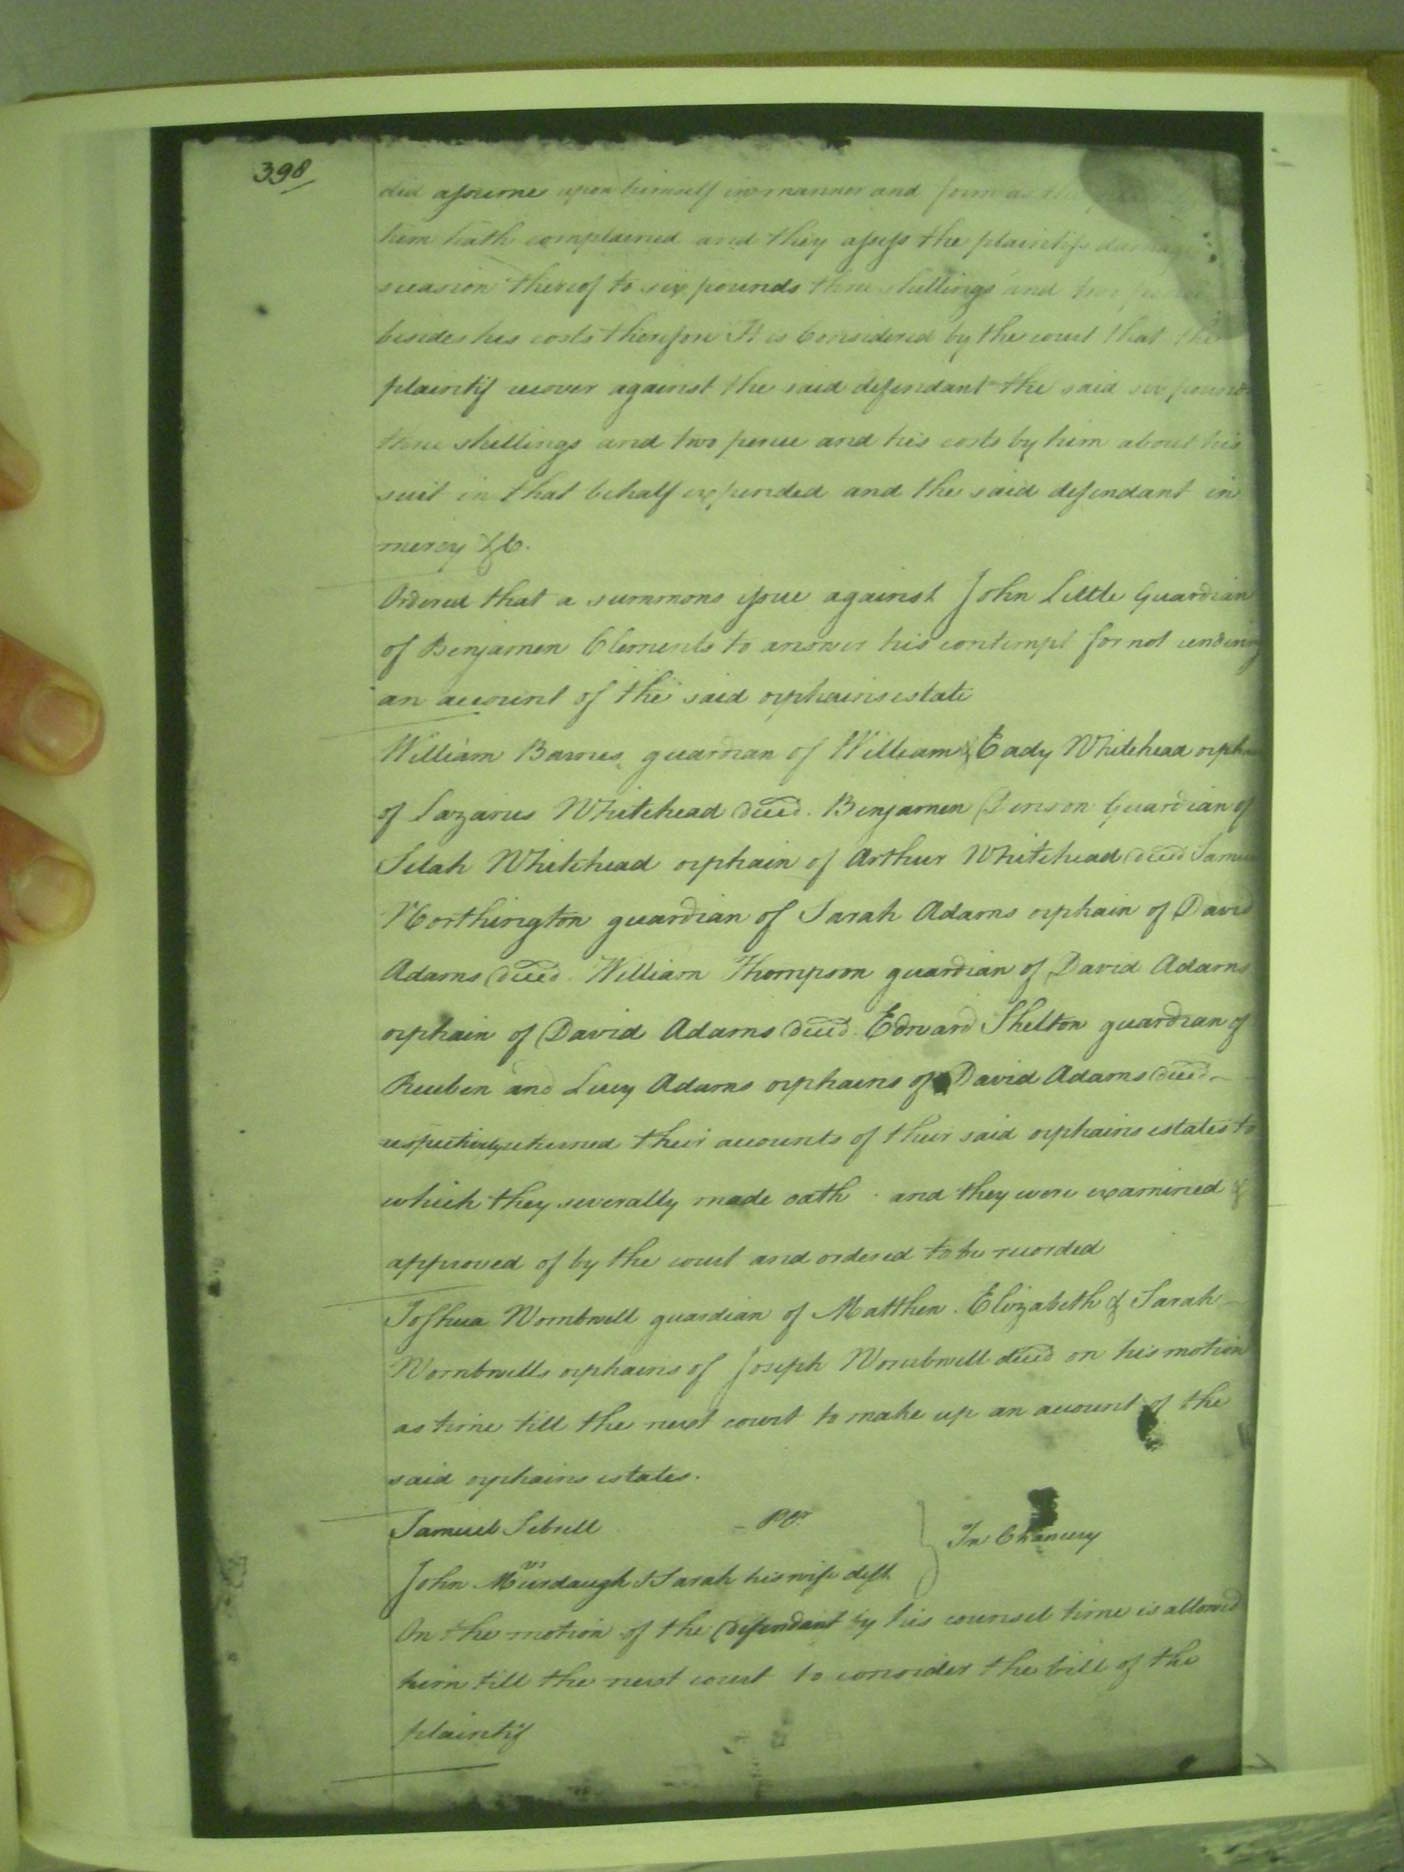 398
did assume upon himself in manner and form as the
him hath complained and they assess the plaintifs damages
occasion thereof to six pounds three shillings and two pence
besides his costs therefore It is Considered by the court that the
plaintif recover against the said defendant the said six pounds
three shillings and two pence and his costs by him about his
suit in that behalf expended and the said defendant in
mercy &c.
Ordered that a summons issue against John Little Guardian
of Benjamen Clements to answer his contempt for not rendering
an account of the said orphains estate
William Barnes guardian of William & Eady Whitehead orphains
of Lazarus Whitehead decd. Benjamen Denson Guardian of
Selah Whitehead orphain of Arthur Whitehead decd Samuel
Northington guardian of Sarah Adams orphain of David
Adams decd. William Thompson guardian of David Adams
orphain of David Adams decd. Edward Shelton guardian of
Reuben and Lucy Adams orphains of David Adams decd.
respectively returned their accounts of their said orphains estates to
which they severally made oath and they were examined &
approved of by the court and ordered to be recorded
Joshua Wombwell guardian of Matthew. Elizabeth & Sarah
Wombwells orphains of Joseph Wombwell decd on his motion
as time till the next court to make up an account of the
said orphains estates.
Samuel Sebrell
In Chancery
vs
John Murdaugh & Sarah his wife deft
On the motion of the Defendant by his counsel time is allowed
him till the next court to consider the bill of the
plaintif